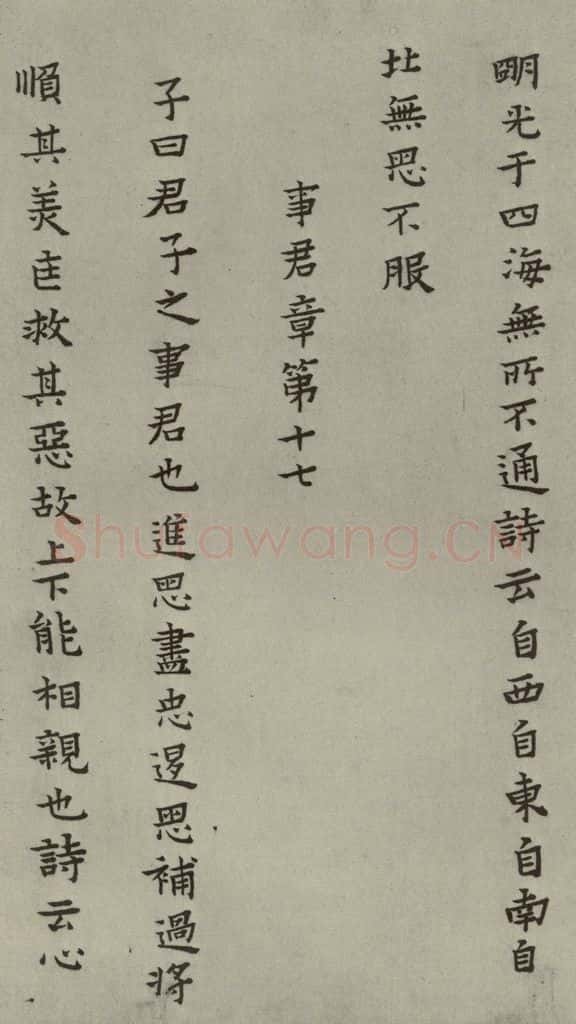 明光于四海無所不通詩云自西自東自南自
北無思不服
事君章第十七
子曰君子之事君也進思盡忠退思補過將
順其美匡救其惡故上下能相親也詩云心
Shufawang.CN